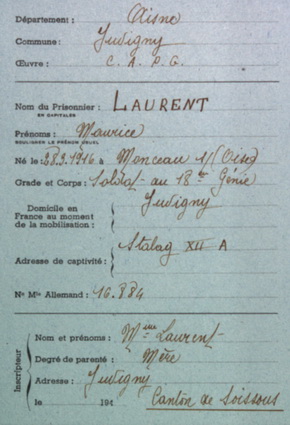 Département : Aisne
Commune : Juvigny
Œuvre : C. A. P. G.
Nom du Prisonnier : LAURENT
EN CAPITALES
Prénoms : Maurice
SOULIGNER LE PRÉNOM USUEL
Né le 28.9.1916 à Monceau s/ Oise
Grade et Corps : Soldat au 18e Génie
Domicile en France au moment de la mobilisation : Juvigny
Adresse de captivité : Stalag XII A
N° Mle Allemand : 16.884
Inscripteur
Nom et prénoms : Mme Laurent
Degré de parenté : Mère
Adresse : Juvigny
le 194 Canton de Soissons